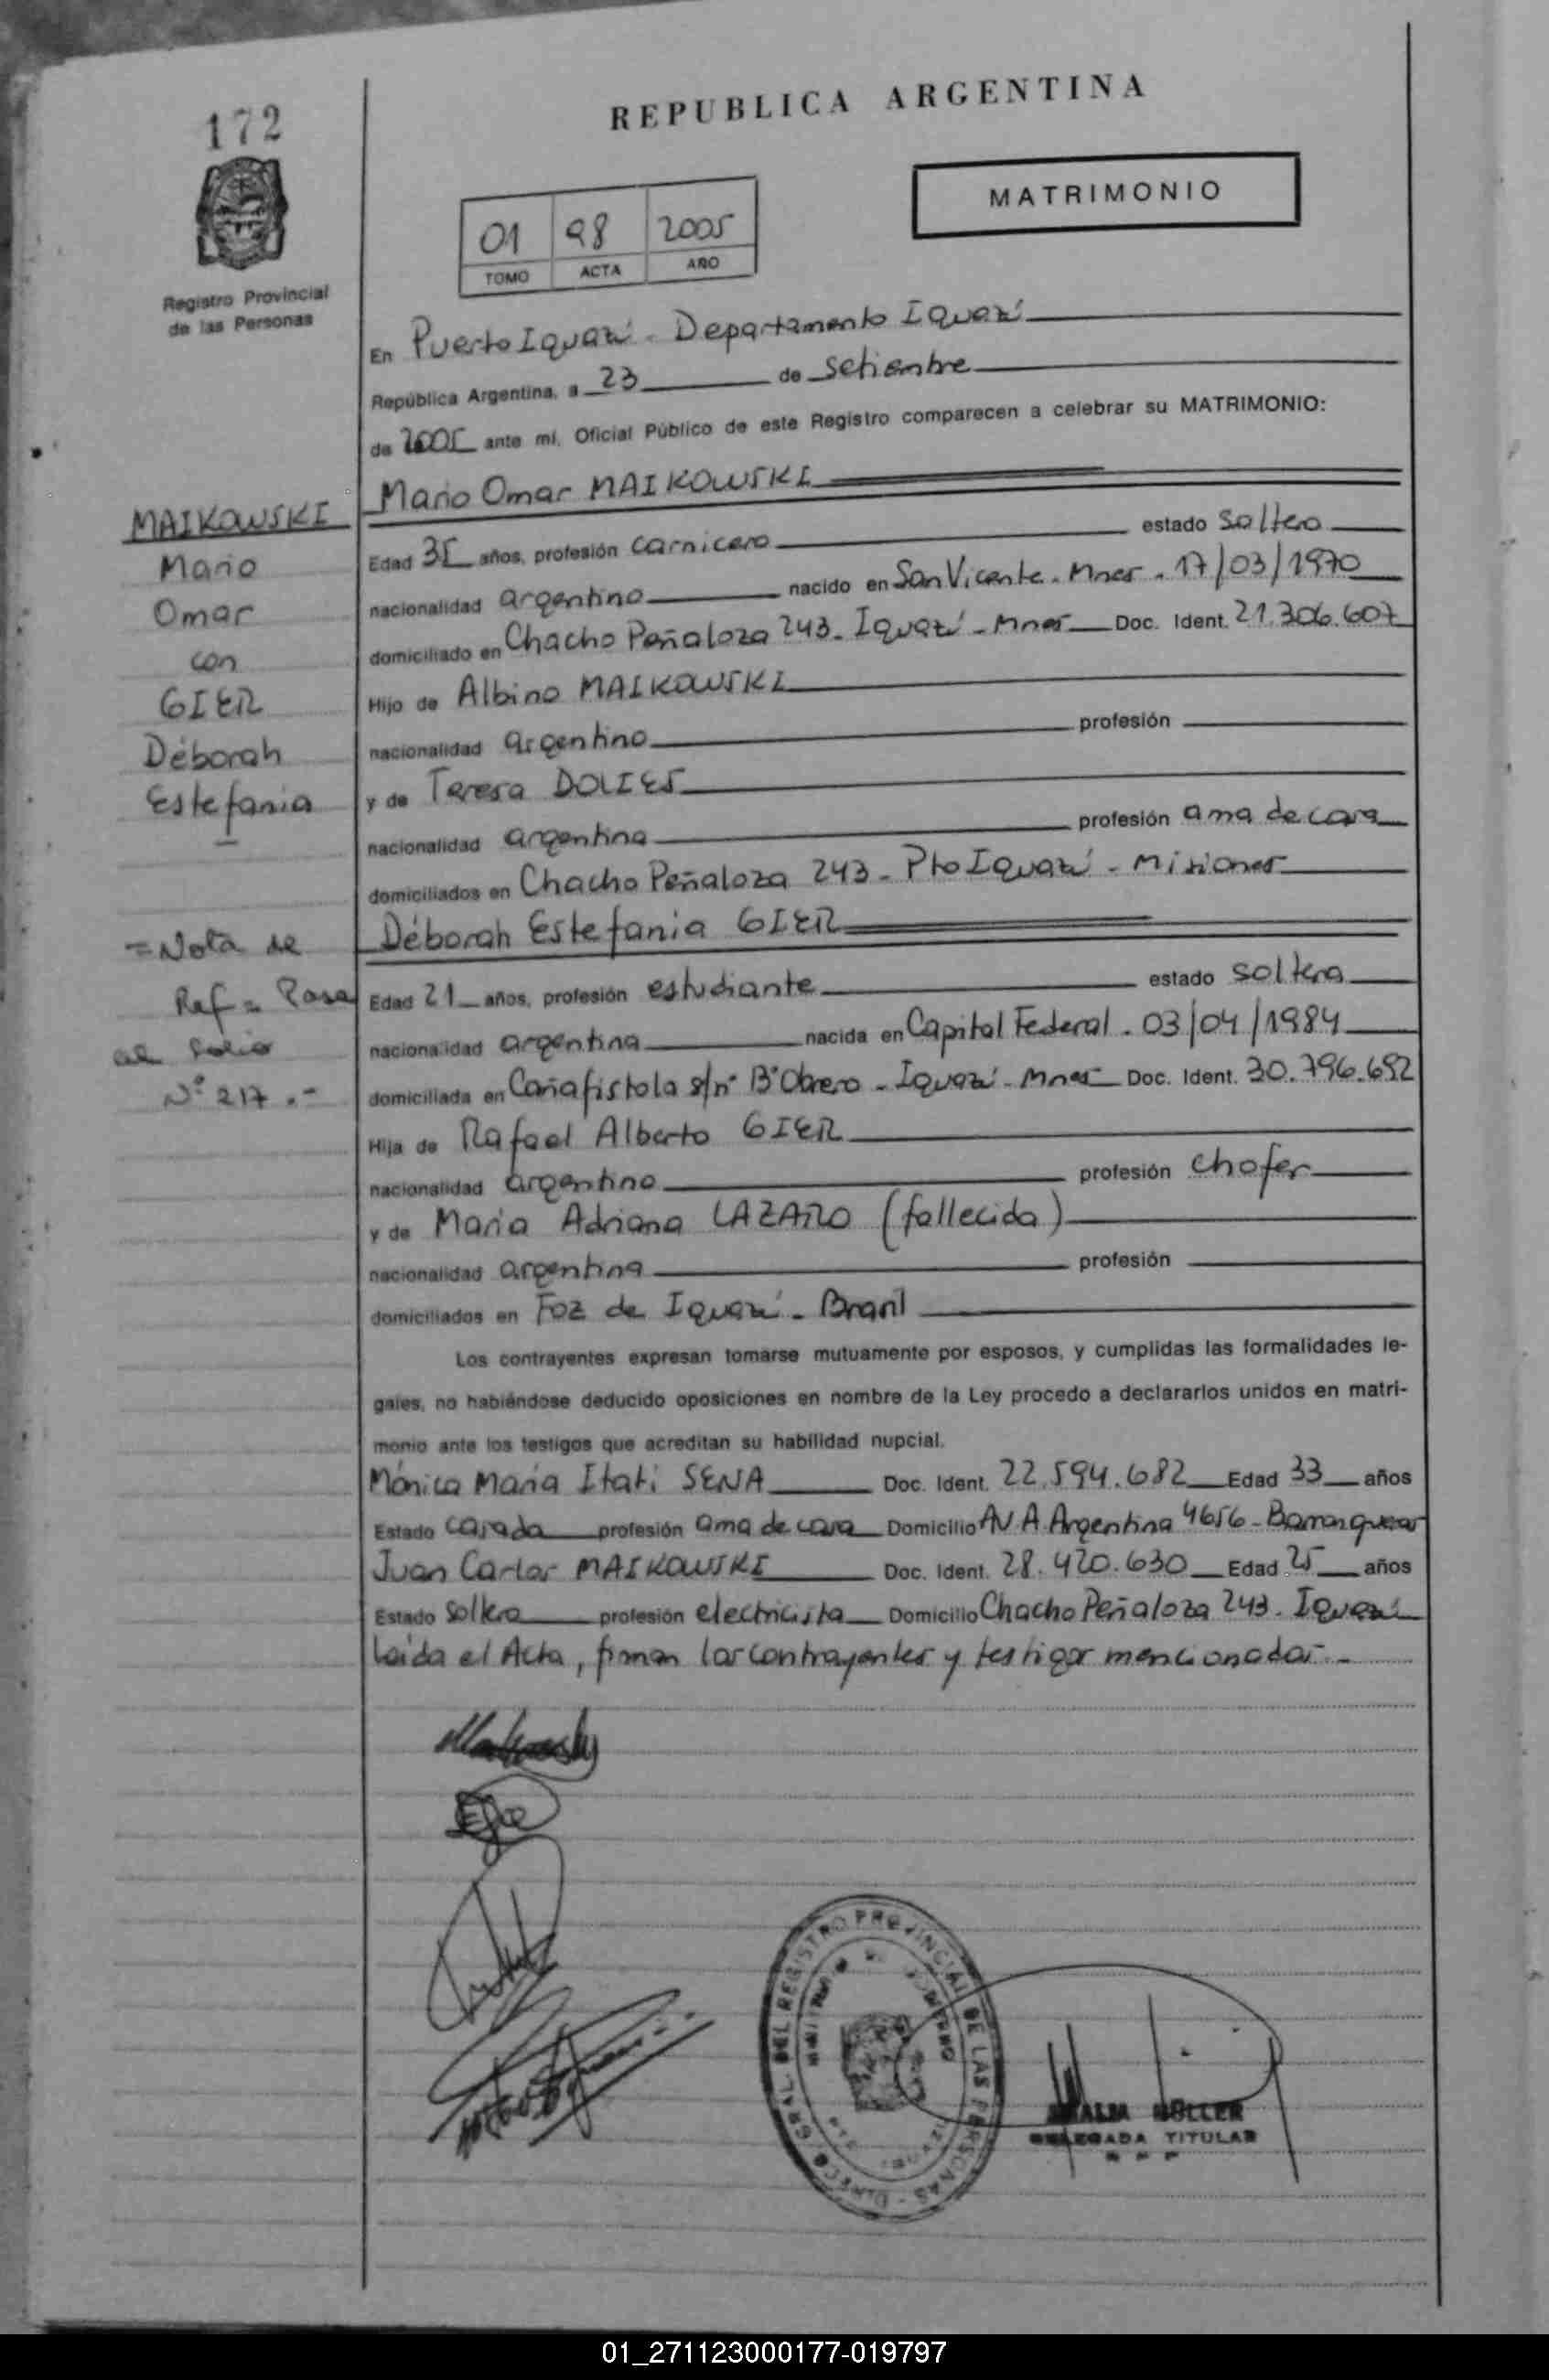 172
REPUBLICA ARGENTINA
MATRIMONIO
01 98 2005
TOMO ACTA AÑO
Registro Provincial
de las Personas
En Puerto Iguazú - Departamento Iguazú
República Argentina, a 23 de Setiembre
de 2005 ante mí, Oficial Público de este Registro comparecen a celebrar su MATRIMONIO:
Mario Omar MAIKOWSKI
MAIKOWSKI
Mario
Omar
con
GIER
Déborah
Estefania
Edad 35 años, profesión carnicero estado soltero
nacionalidad argentino nacido en San Vicente - Mnes - 17/03/1970
domiciliado en Chacho Peñaloza 243 - Iguazú - Mnes Doc. Ident. 21.306.607
Hijo de Albino MAIKOWSKI
nacionalidad argentino profesión
y de Teresa DOLIES
nacionalidad argentina profesión ama de casa
domiciliados en Chacho Peñaloza 243 - Pto Iguazú - Misiones
Déborah Estefania GIER
= Nota de
Ref = Pasa
al folio
Nº 217 .-
Edad 21 años, profesión estudiante estado soltera
nacionalidad argentina nacida en Capital Federal - 03/04/1984
domiciliada en Cañafistola s/nº Bº Obrero - Iguazú - Mnes Doc. Ident. 30.796.652
Hija de Rafael Alberto GIER
nacionalidad argentino profesión chofer
y de Maria Adriana LAZARO (fallecida)
nacionalidad argentina profesión
domiciliados en Foz de Iguazú - Brasil
Los contrayentes expresan tomarse mutuamente por esposos, y cumplidas las formalidades le-
gales, no habiéndose deducido oposiciones en nombre de la Ley procedo a declararlos unidos en matri-
monio ante los testigos que acreditan su habilidad nupcial.
Mónica Maria Itati SENA Doc. Ident. 22.594.682 Edad 33 años
Estado casada profesión ama de casa Domicilio AV. A. Argentina 4656 - Barranqueras
Juan Carlos MAIKOWSKI Doc. Ident. 28.420.630 Edad 25 años
Estado soltero profesión electricista Domicilio Chacho Peñaloza 243 - Iguazú
Leida el Acta, firman los contrayentes y testigos mencionados.-
DIRECC. GRAL. DEL REGISTRO PROVINCIAL DE LAS PERSONAS
MÜLLER
DELEGADA TITULAR
01_271123000177-019797